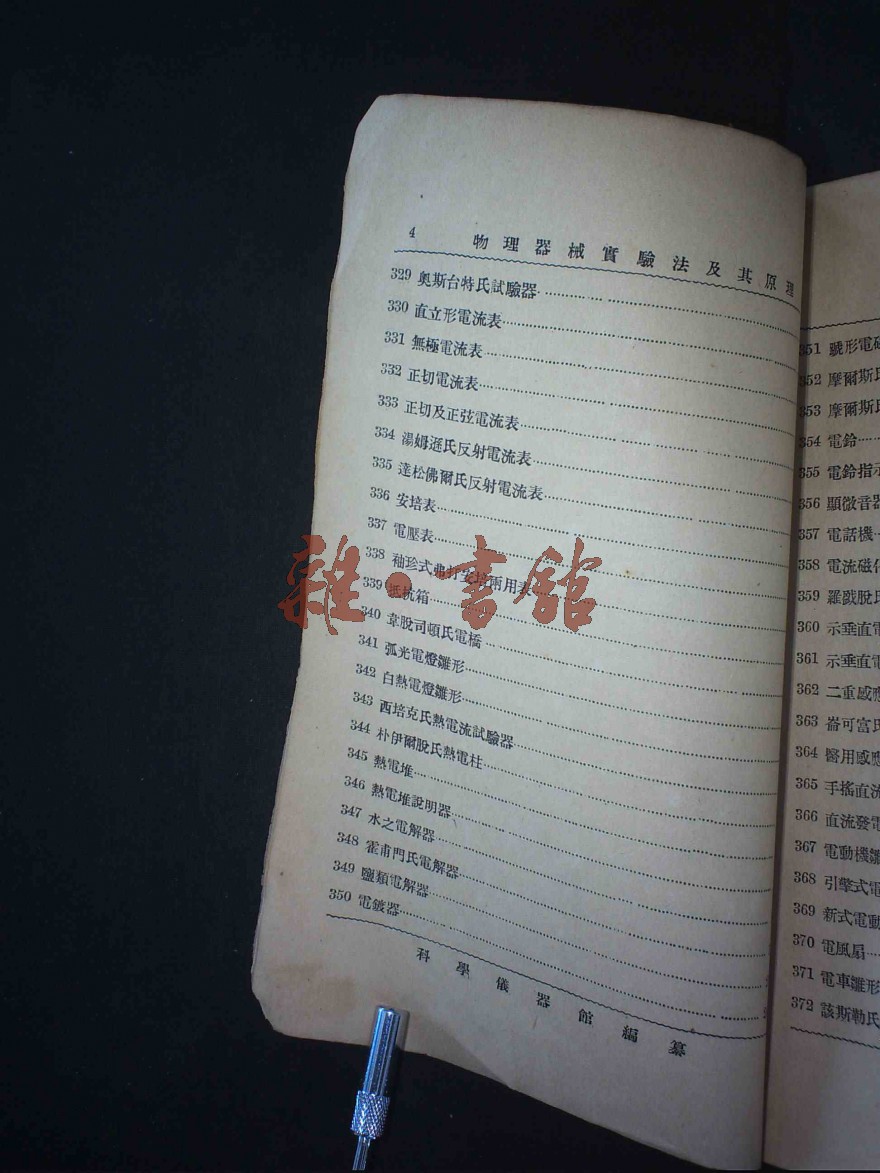 4 物理器械實驗法及其原理
329 奧斯台特氏試驗器
330 直立形電流表
331 無極電流表
332 正切電流表
333 正切及正弦電流表
334 湯姆遜氏反射電流表
335 達松佛爾氏反射電流表
336 安培表
337 電壓表
338 袖珍式弗打安培兩用表
339 抵杭箱
340 韋股司頓氏電橋
341 弧光電燈雛形
342 白熱電燈雛形
343 西培克氏熱電流試驗器
344 朴伊爾股氏熱電柱
345 熱電堆
346 熱電堆說明器
347 水之電解器
348 霍甫門氏電解器
349 鹽類電解器
350 電鍍器
科學儀器館編纂
351 號形電
352 摩爾斯
353 摩爾斯
354 電鈴
355 電鈴指示
356 顯微音器
357 電話機
358 電流磁
359 羅戲股
360 示垂直電
361 示垂直電
362 二重感應
363 崙可富
364 醫用感應
365 手搖直流
366 直流發電
367 電動機雛
368 引擎式電
369 新式電動
370 電風扇
371 電車雛形
372 該斯勒氏
雜·書館